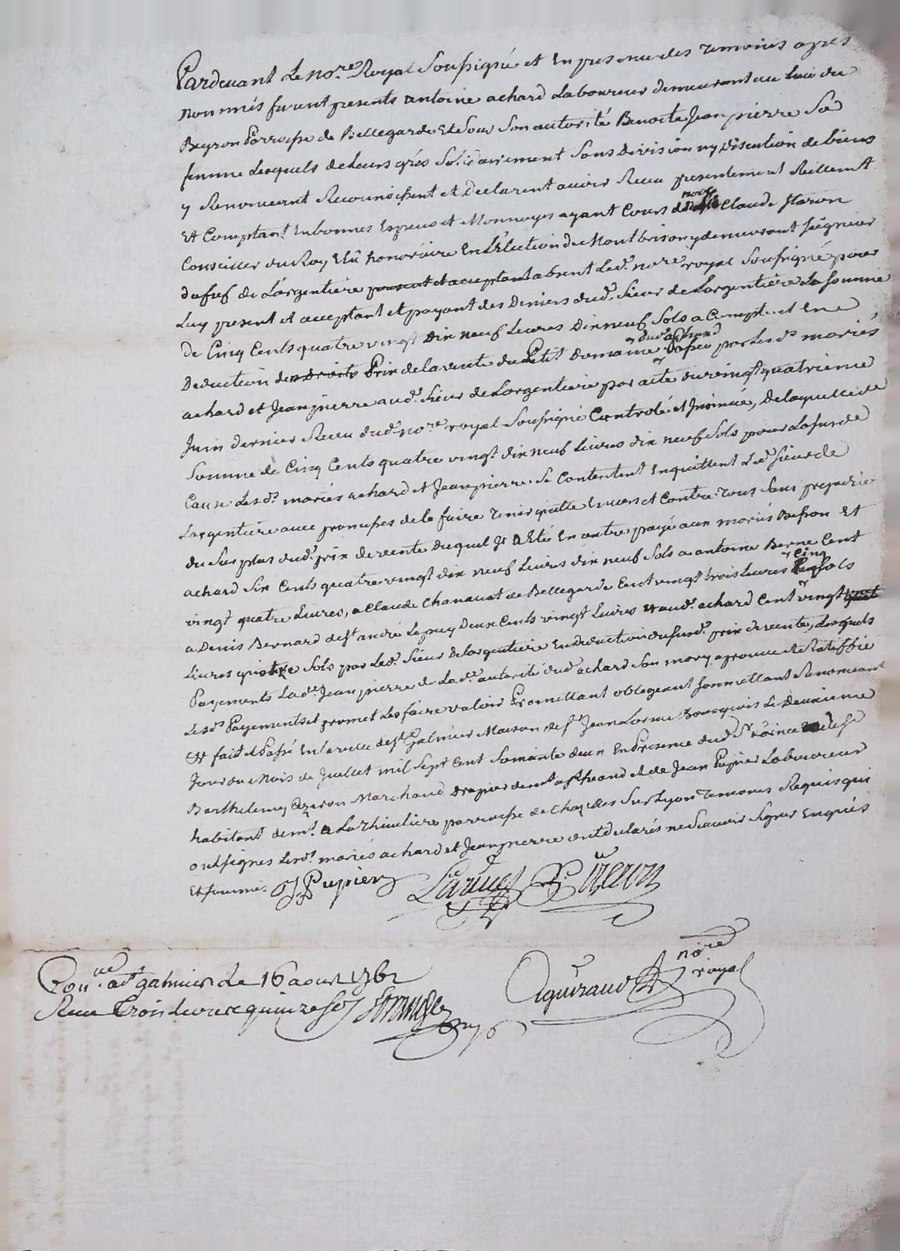 Pardevant Le no.re Royal Soussigné et En presence des temoins apres
nommés furent presents antoine achard Laboureur demeurant au Lieu du
Beyron Parroisse de Bellegarde Et de Sous Son autorité Benoite Jeanpierre Sa
femme Lesquels de Leurs grés Solidairement Sans Division ny Discution de biens
y Renonceant Reconnoissent et Declarent avoir Receu presentement Reellement
Et Comptant En bonnes Especes et Monnoyes ayant Cours de noble Claude Staron
Conseiller du Roy Elû honoraire En L'Election de Montbrison y demeurant Seigneur
du fief de Largentiere present et acceptant absent Led. no.re royal Soussigné pour
Luy present et acceptant et payant des Deniers dud. Sieur de Largentiere La Somme
de Cinq Cents quatre vingt dix neuf Livres dix neuf Sols a Compte et En
Deduction du Prix de la vente du Petit Domaine dud. achard passée par Lesd. mariés
achard et Jeanpierre aud. Sieur de Largentiere par acte du vingt quatrieme
Juin dernier Receu dud. no.re royal Soussigné Controlé et Insinué, De laquelle de
Somme de Cinq Cents quatre vingt dix neuf Livres dix neuf Sols pour La susde
Cause Lesd. mariés achard et Jeanpierre Se Contentent En quittent Led. Sieur de
Largentiere avec promesses de le faire tenir quitte Envers et Contre tous Sans prejudice
du Surplus dud. prix de vente Duquel Il a Eté En outre payé aux mariés Et
achard Six Cents quatre vingt dix neuf Livres dix neuf Sols a antoine Berne Cent
vingt quatre Livres, a Claude Chanavat de Bellegarde Cent vingt trois Livres Cinq Sols
a Denis Bernard de St andré Le puy Deux Cents vingt Livres aud. achard Cent vingt
Livres quatre Sols par Led. Sieur de Largentiere En deduction du susd. prix de vente, Lesquels
Payements Lade. Jeanpierre de Lade. autorité dud. achard Son mary approuve et Ratiffie
Lesd. Payements et promet Les faire valoir Promettant obligeant Soumettant Renonceant
Et fait et Passé En la ville de St. Galmier Maison de Sr. Jean Larue Bourgeois Le Deuxieme
Jour du Mois de Juillet Mil Sept Cent Soixante deux En Presence dud. Sr. Larue de Sr.
Barthelemy Marchand drapier et de Jean Pupier Laboureur
habitant de La Thiolliere parroisse de Chazelles Sur Lyon temoins Requis qui
ont signés Lesd. mariés achard et Jeanpierre ont declarés ne Scavoir Signer Enquis
Et sommés. J Pupier Larue
Con.lé a St galmier Le 16 aout 1762
Receu Trois Livres quinze Sols
Aguiraud no.re royal